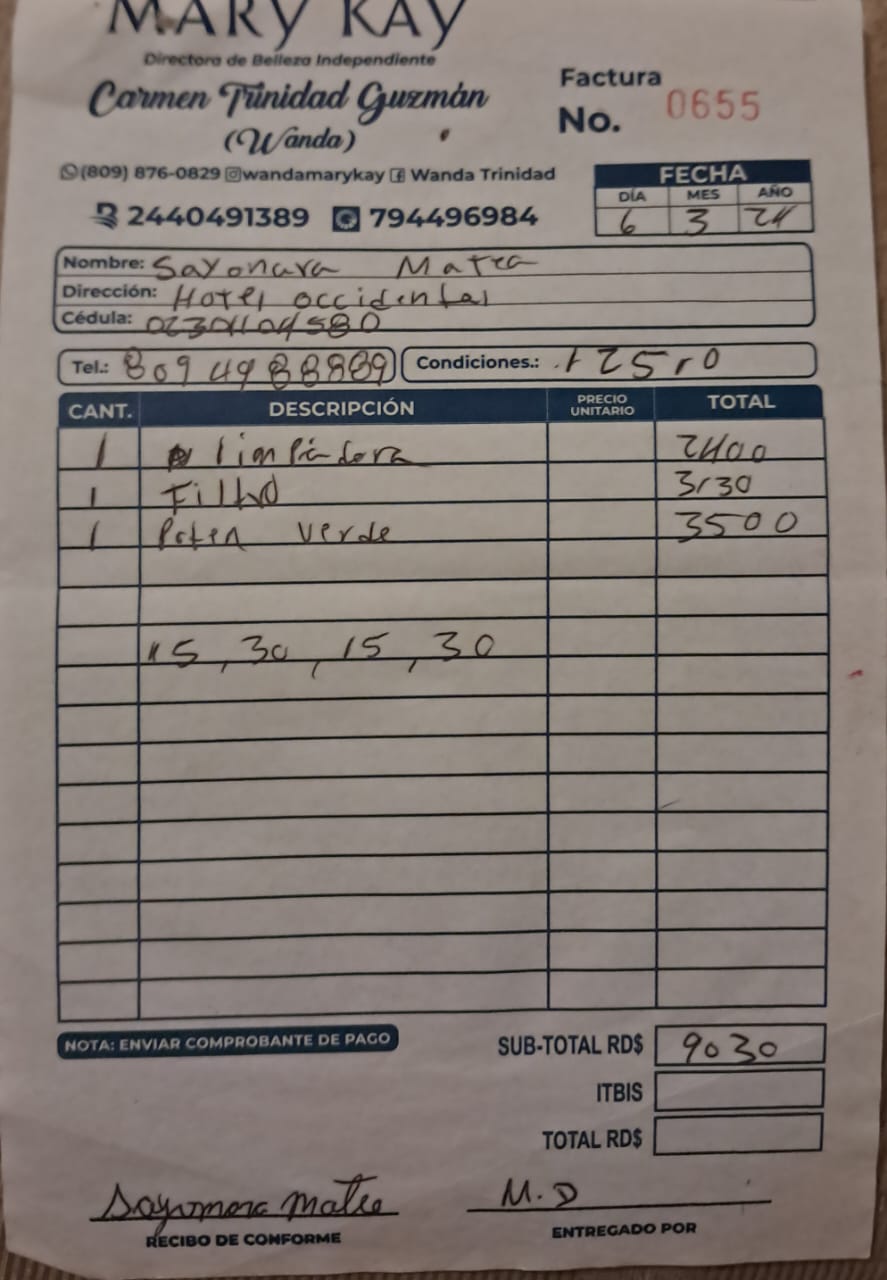 MARY KAY
Directora de Belleza Independiente
Carmen Trinidad Guzmán
(Wanda)
Factura
No. 0655
(809) 876-0829 wandamarykay Wanda Trinidad
2440491389 794496984
FECHA
DÍA MES AÑO
6 3 24
Nombre: Sayonara Matea
Dirección: Hotel occidental
Cédula:
Tel.: 809 4988889 Condiciones.:
CANT. DESCRIPCIÓN PRECIO UNITARIO TOTAL
1 limpiadora 2400
1 Filtro 3130
1 verde 3500
15, 30, 15, 30
NOTA: ENVIAR COMPROBANTE DE PAGO
SUB-TOTAL RD$ 9030
ITBIS
TOTAL RD$
Sayonara Mateo
RECIBO DE CONFORME
M.D
ENTREGADO POR